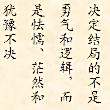 决定结局的不是
勇气和逻辑，而
是怯懦、茫然和
犹豫不决